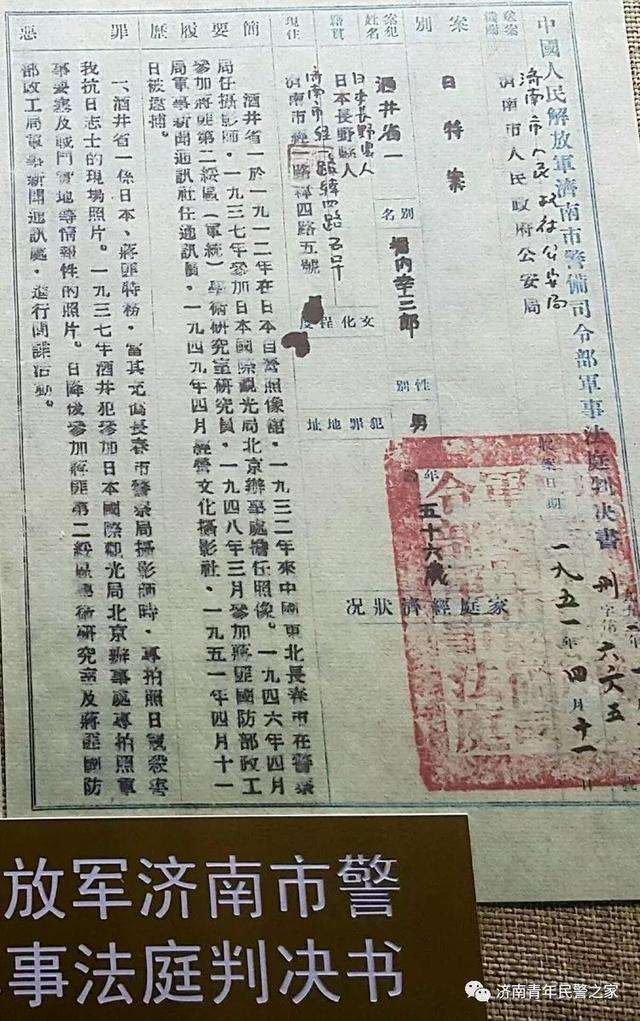 中國人民解放軍濟南市警備司令部軍事法庭判决書
刑字第六六五
一九五一年四月十一日
濟南市人民政府公安局
濟南市人民政府公安局
案別
日特案
姓名
酒井省一
別名
堀内幸三郎
性別
男
年
五十六歲
籍貫
日本長野縣人
日本長野縣人
文化程度
家庭經濟狀况
現住
濟南市經二路緯四路五號
濟南市經二路緯四路五號
犯罪地址
簡要履歷
酒井省一於一九一二年在日本自營照像舘．一九三二年來中國東北長春市在警察
局任攝影師．一九三七年參加日本國際觀光局北京辦事處擔任照像。一九四六年四月
參加蔣匪第二綏區（軍統）學術研究室研究員．一九四八年三月參加蔣匪國防部政工
局軍事新聞通訊社任通訊員．一九四九年四月經營文化攝影社．一九五一年四月十一
日被逮捕。
罪惡
一、酒井省一係日本、蔣匪特務．當其充偽長春市警察局攝影師時．專拍照日寇殺害
我抗日志士的現場照片。一九三七年酒井犯參加日本國際觀光局北京辦事處專拍照軍
事要塞及戰鬥實地等情報性的照片。日降後參加蔣匪第二綏區學術研究室及蔣匪國防
部政工局軍事新聞通訊處．進行間諜活動。
放军济南市警
事法庭判决书
济南青年民警之家